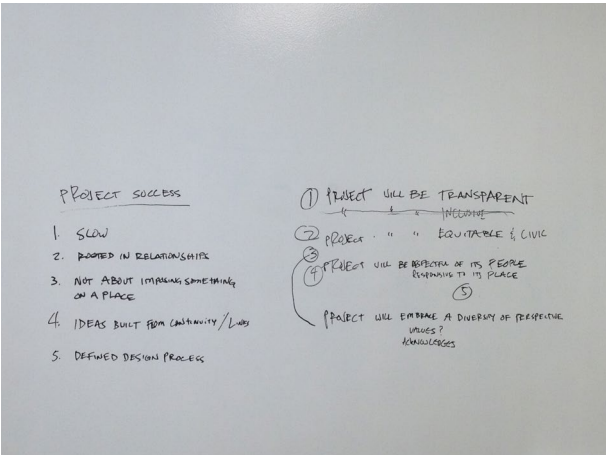 PROJECT SUCCESS
1. SLOW
2. ROOTED IN RELATIONSHIPS
3. NOT ABOUT IMPOSING SOMETHING
ON A PLACE
4. IDEAS BUILT FROM CONTINUITY /
5. DEFINED DESIGN PROCESS
① PROJECT WILL BE TRANSPARENT
" " " INCLUSIVE
② PROJECT " " EQUITABLE & CIVIL
③
④ PROJECT WILL BE RESPECTFUL OF ITS PEOPLE
RESPONSIVE TO ITS PLACE
⑤
PROJECT WILL EMBRACE A DIVERSITY OF PERSPECTIVE
VALUES?
ACKNOWLEDGES